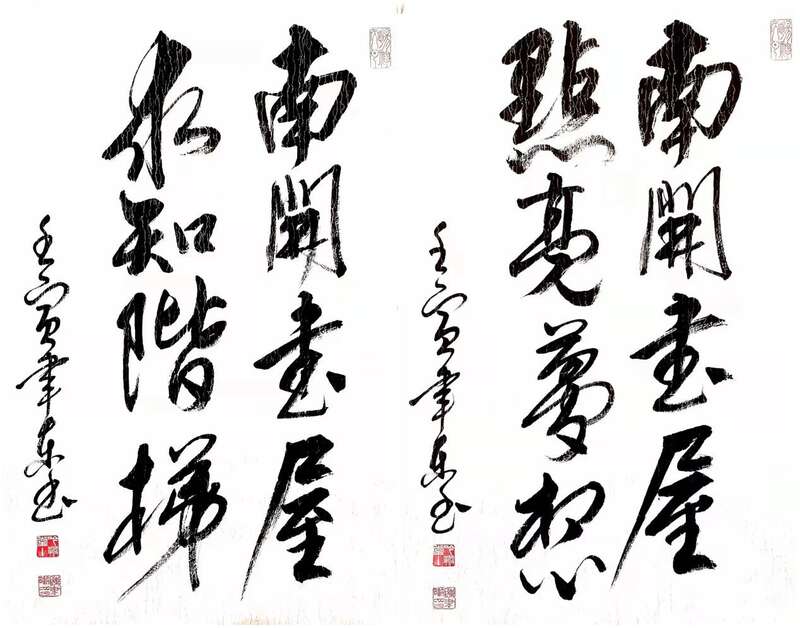 南開書屋
點亮夢想
壬寅聿東書
南開書屋
求知階梯
壬寅聿東書